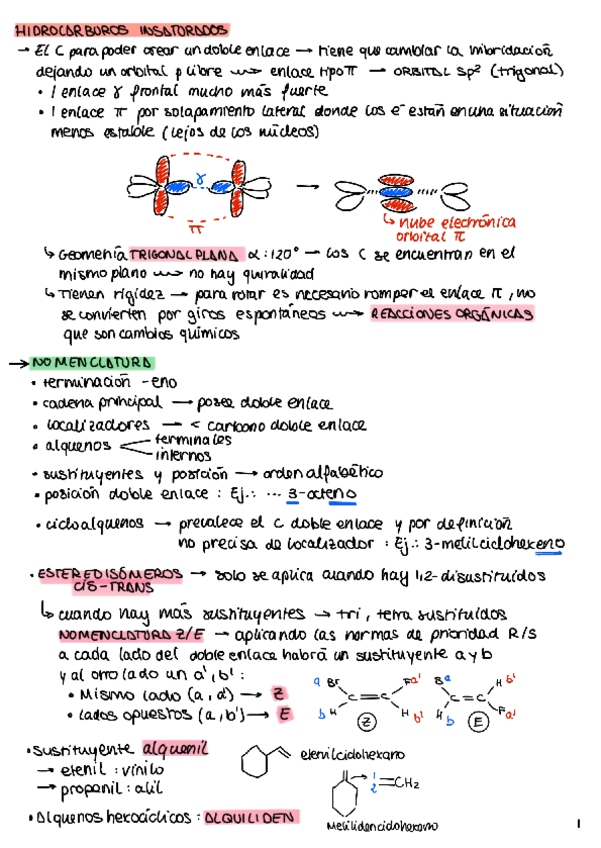 HIDROCARBUROS INSATURADOS
→ El C para poder crear un doble enlace → tiene que cambiar la hibridación
dejando un orbital p libre ⟿ enlace tipo π → ORBITAL sp² (trigonal)
• 1 enlace γ frontal mucho más fuerte
• 1 enlace π por solapamiento lateral donde los e⁻ están en una situación
menos estable (lejos de los núcleos)
γ
π
→
↳ nube electrónica
orbital π
↳ Geometría TRIGONAL PLANA α:120° → los C se encuentran en el
mismo plano ⟿ no hay quiralidad
↳ Tienen rigidez → para rotar es necesario romper el enlace π, no
se convierten por giros espontáneos ⟿ REACCIONES ORGÁNICAS
que son cambios químicos
→ NOMENCLATURA
• terminación -eno
• cadena principal → posee doble enlace
• localizadores → < carbono doble enlace
• alquenos
terminales
internos
• sustituyentes y posición → orden alfabético
• posición doble enlace : Ej.: ... 3-octeno
• cicloalquenos → prevalece el C doble enlace y por definición
no precisa de localizador : Ej.: 3-metilciclohexeno
• ESTEREOISÓMEROS → solo se aplica cuando hay 1,2-disustituidos
CIS-TRANS
↳ cuando hay más sustituyentes → tri, tetra sustituidos
NOMENCLATURA Z/E → aplicando las normas de prioridad R/S
a cada lado del doble enlace habrá un sustituyente a y b
y al otro lado un a', b' :
• Mismo lado (a, a') → Z
• lados opuestos (a, b') → E
a Br F a'
C=C
b H H b'
Z
B a H b'
C=C
H b F a'
E
• Sustituyente alquenil
→ etenil : vinilo
→ propenil : alil
etenilciclohexano
1
2
=CH₂
• Alquenos hexocíclicos : ALQUILIDEN
Metilidenciclohexano
1